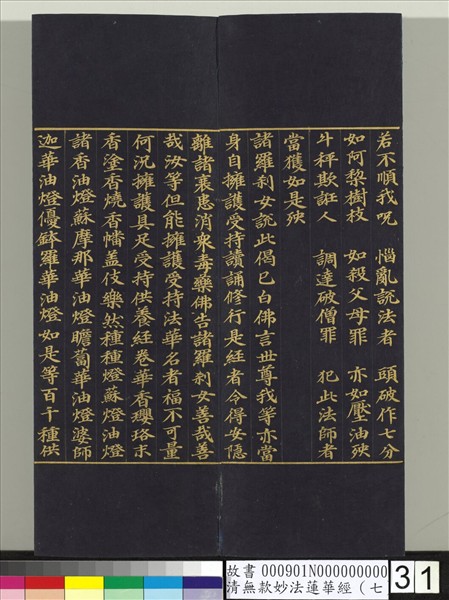 若不順我呪　惱亂說法者　頭破作七分
如阿黎樹枝　如殺父母罪　亦如壓油殃
斗秤欺誑人　調達破僧罪　犯此法師者
當獲如是殃
諸羅刹女說此偈已白佛言世尊我等亦當
身自擁護受持讀誦修行是經者令得安隱
離諸衰患消衆毒藥佛告諸羅刹女善哉善
哉汝等但能擁護受持法華名者福不可量
何況擁護具足受持供養經卷華香瓔珞末
香塗香燒香幡蓋伎樂然種種燈蘇燈油燈
諸香油燈蘇摩那華油燈瞻蔔華油燈婆師
迦華油燈優鉢羅華油燈如是等百千種供
故書 000901N000000000
清無款妙法蓮華經（七
31